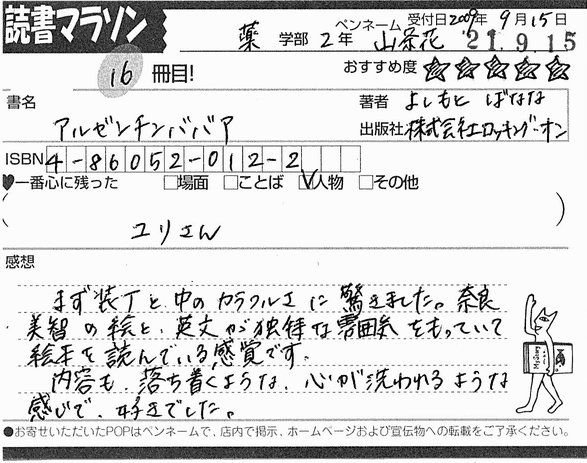 読書マラソン
ペンネーム 受付日2009年9月15日
薬 学部 2年 山茶花 '21.9.15
16 冊目! おすすめ度 ☆☆☆☆☆
書名 著者 よしもと ばなな
アルゼンチンババア 出版社 株式会社ロッキング・オン
ISBN 4-86052-012-2
♥一番心に残った □場面 □ことば ☑人物 □その他
( ユリさん )
感想
まず装丁と、中のカラフルさに驚きました。奈良
美智の絵と、英文が独特な雰囲気をもっていて
絵本を読んでいる感覚です。
内容も、落ち着くような、心が洗われるような
感じで、好きでした。
●お寄せいただいたPOPはペンネームで、店内で掲示、ホームページおよび宣伝物への転載をご了承ください。